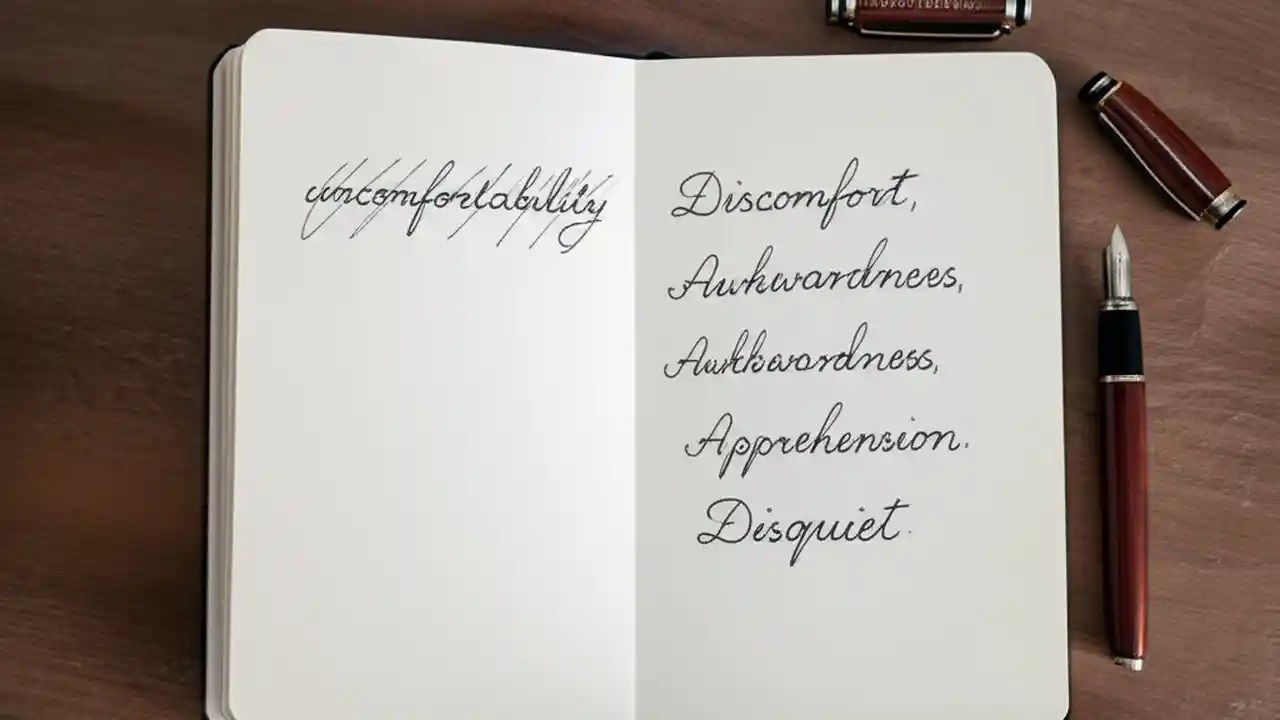 uncomfortability
Discomfort,
Awkwardness,
Awkwardness,
Apprehension.
Disquiet.